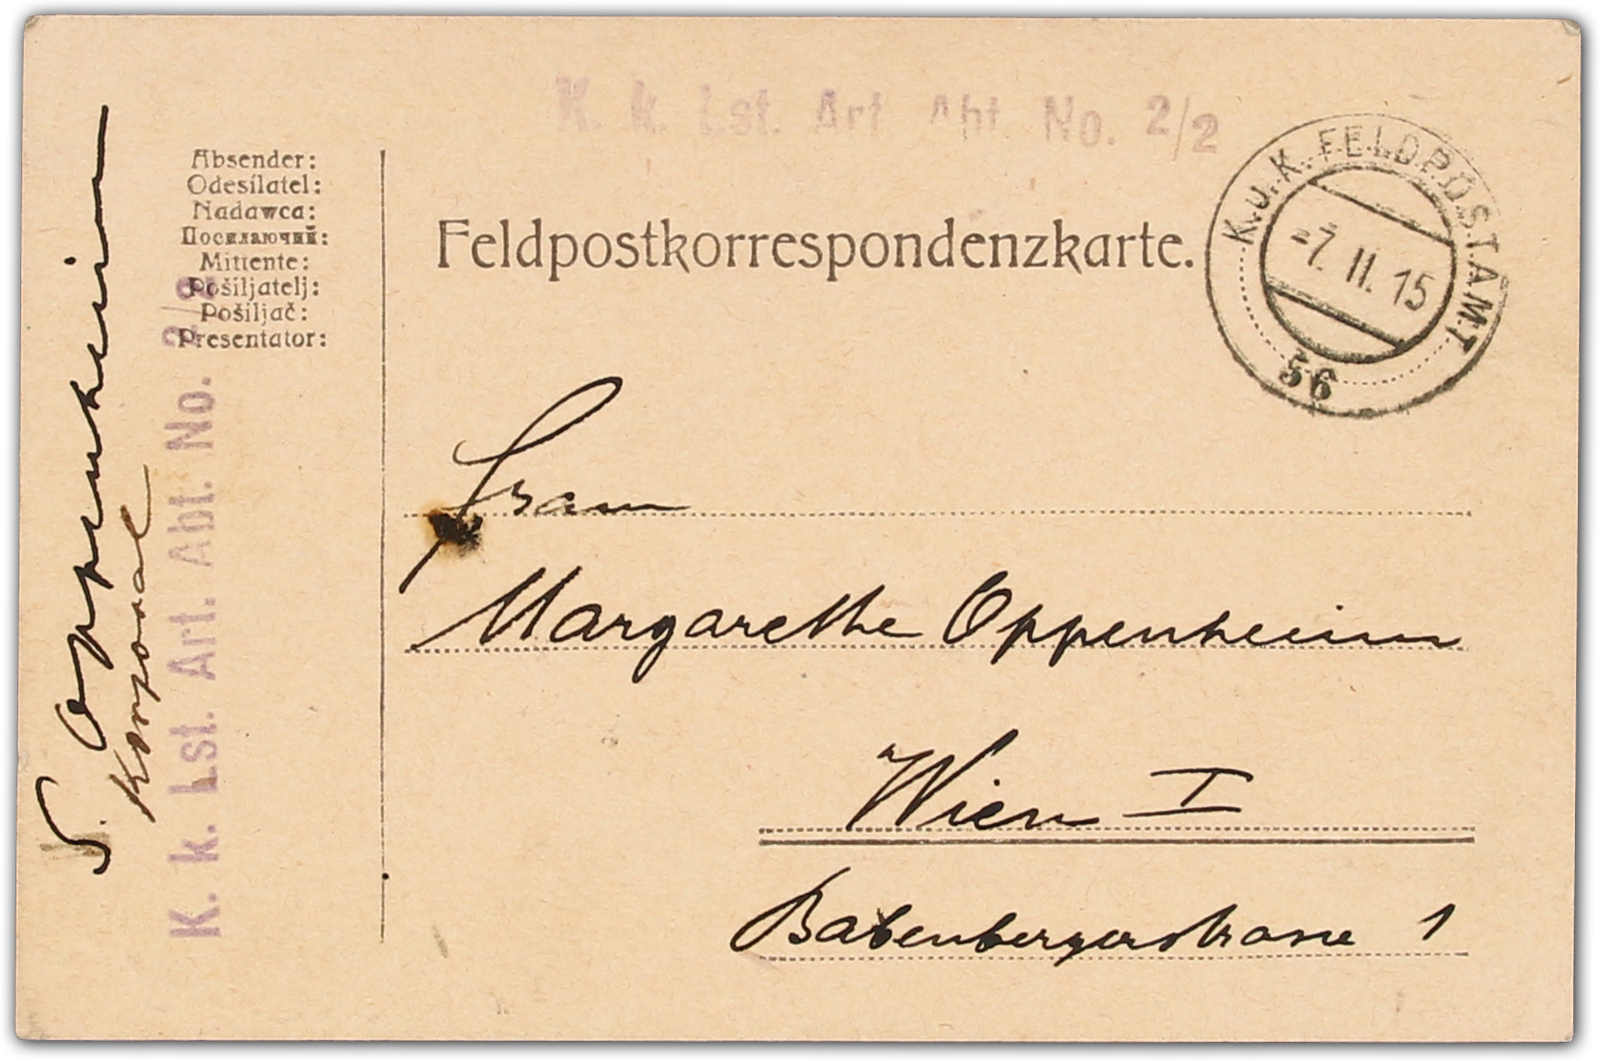 K. k. Lst. Art Abt No. 2/2
K.u.K. FELDPOSTAMT
-7. II. 15
56
Feldpostkorrespondenzkarte.
Absender:
Odesílatel:
Nadawca:
Посилаючий:
Mittente:
Pošiljatelj:
Pošiljač:
Presentator:
S. Oppenheim
Korporal
K. k. Lst. Art. Abt. No. 2/2
Frau
Margarethe Oppenheim
Wien I
Babenbergerstrasse 1